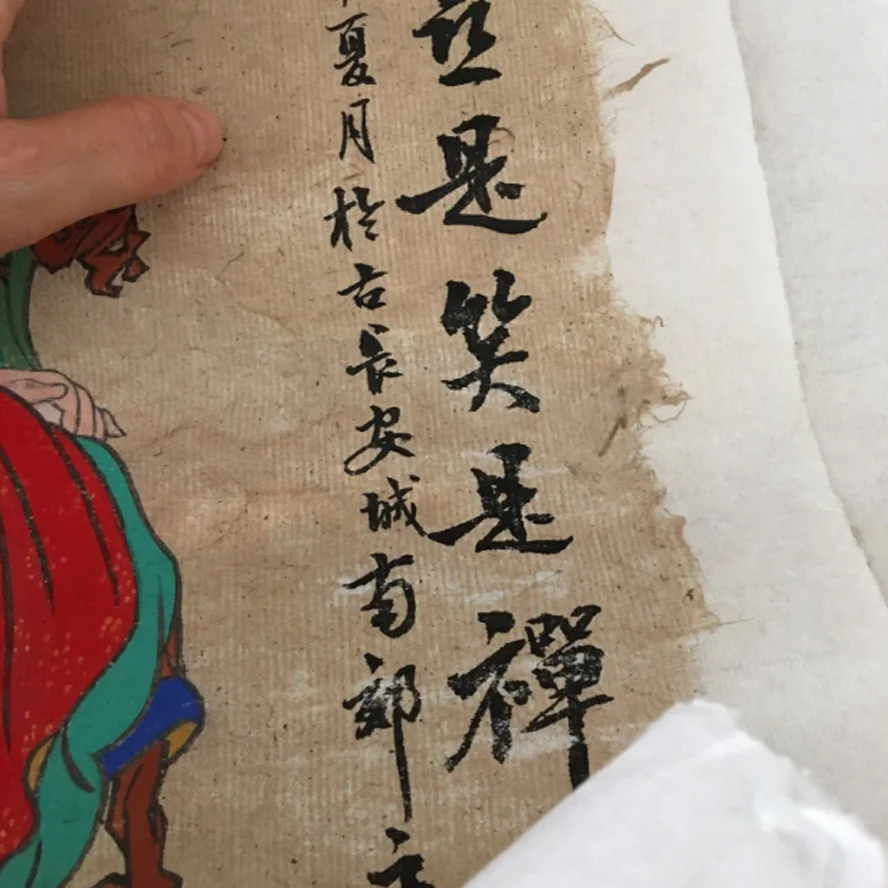 是笑是禪
夏月於古長安城南郊